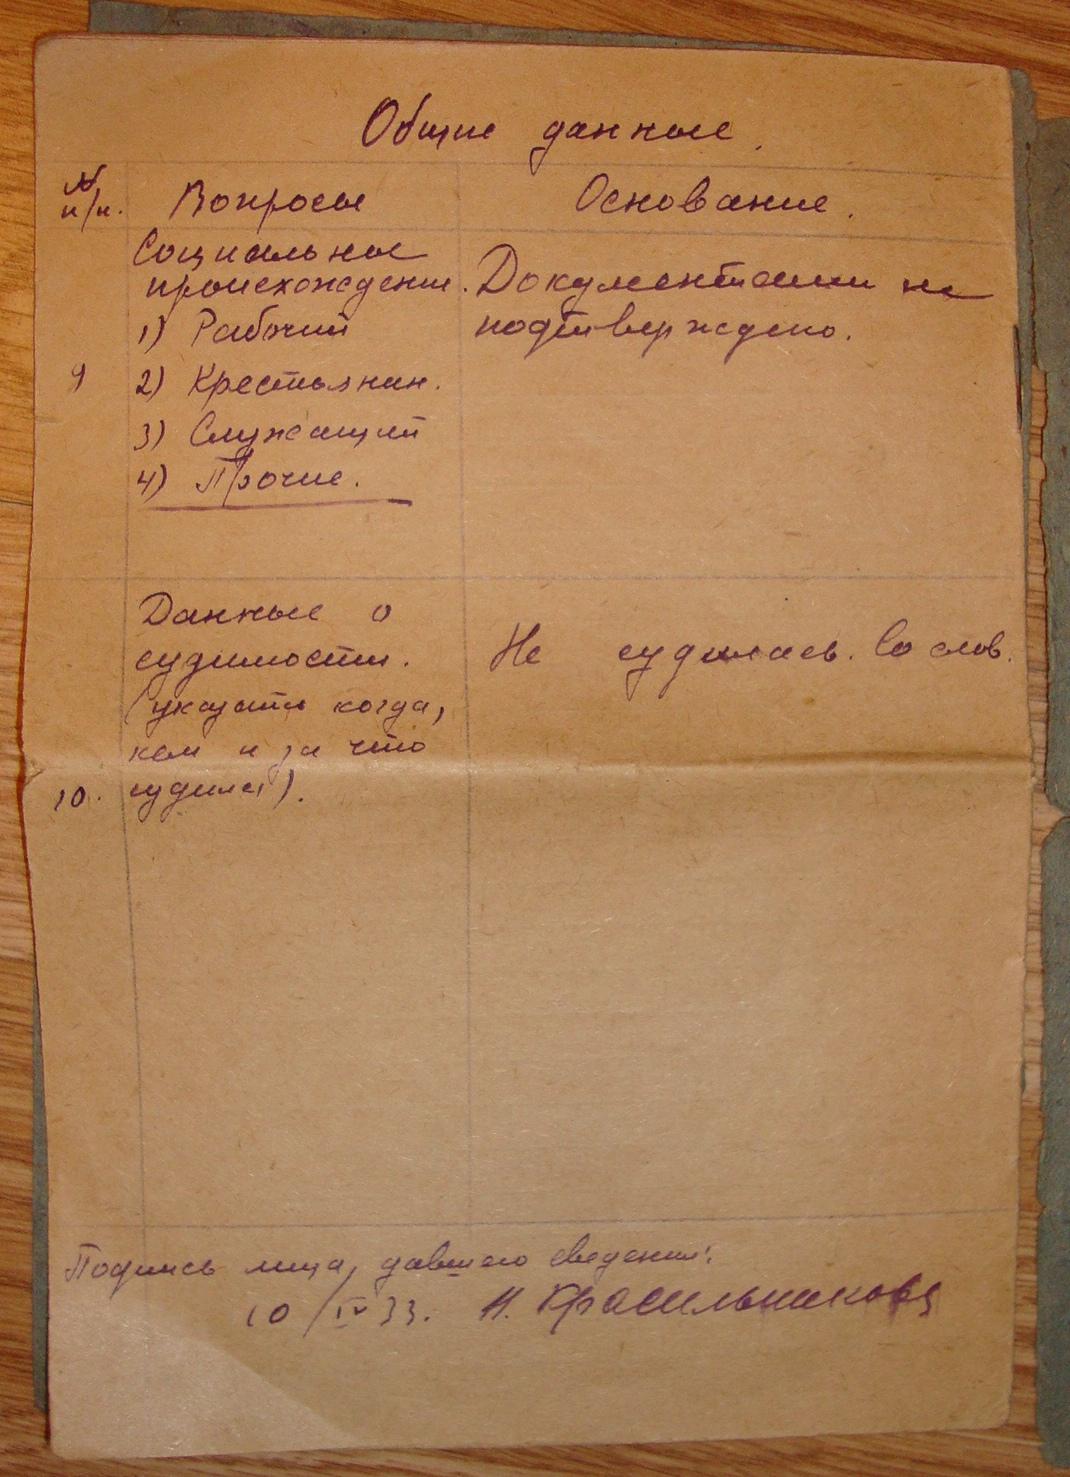 Общие данные.
№
п/п. Вопросы Основание.
Социальное
происхождение. Документами не
1) Рабочий подтверждено.
9 2) Крестьянин.
3) Служащий
4) Прочие.
Данные о
судимости. Не судилась. Со слов.
(указать когда,
кем и за что
10. судился).
Подпись лица, давшего сведения:
10/IV 33. Н. Красильникова